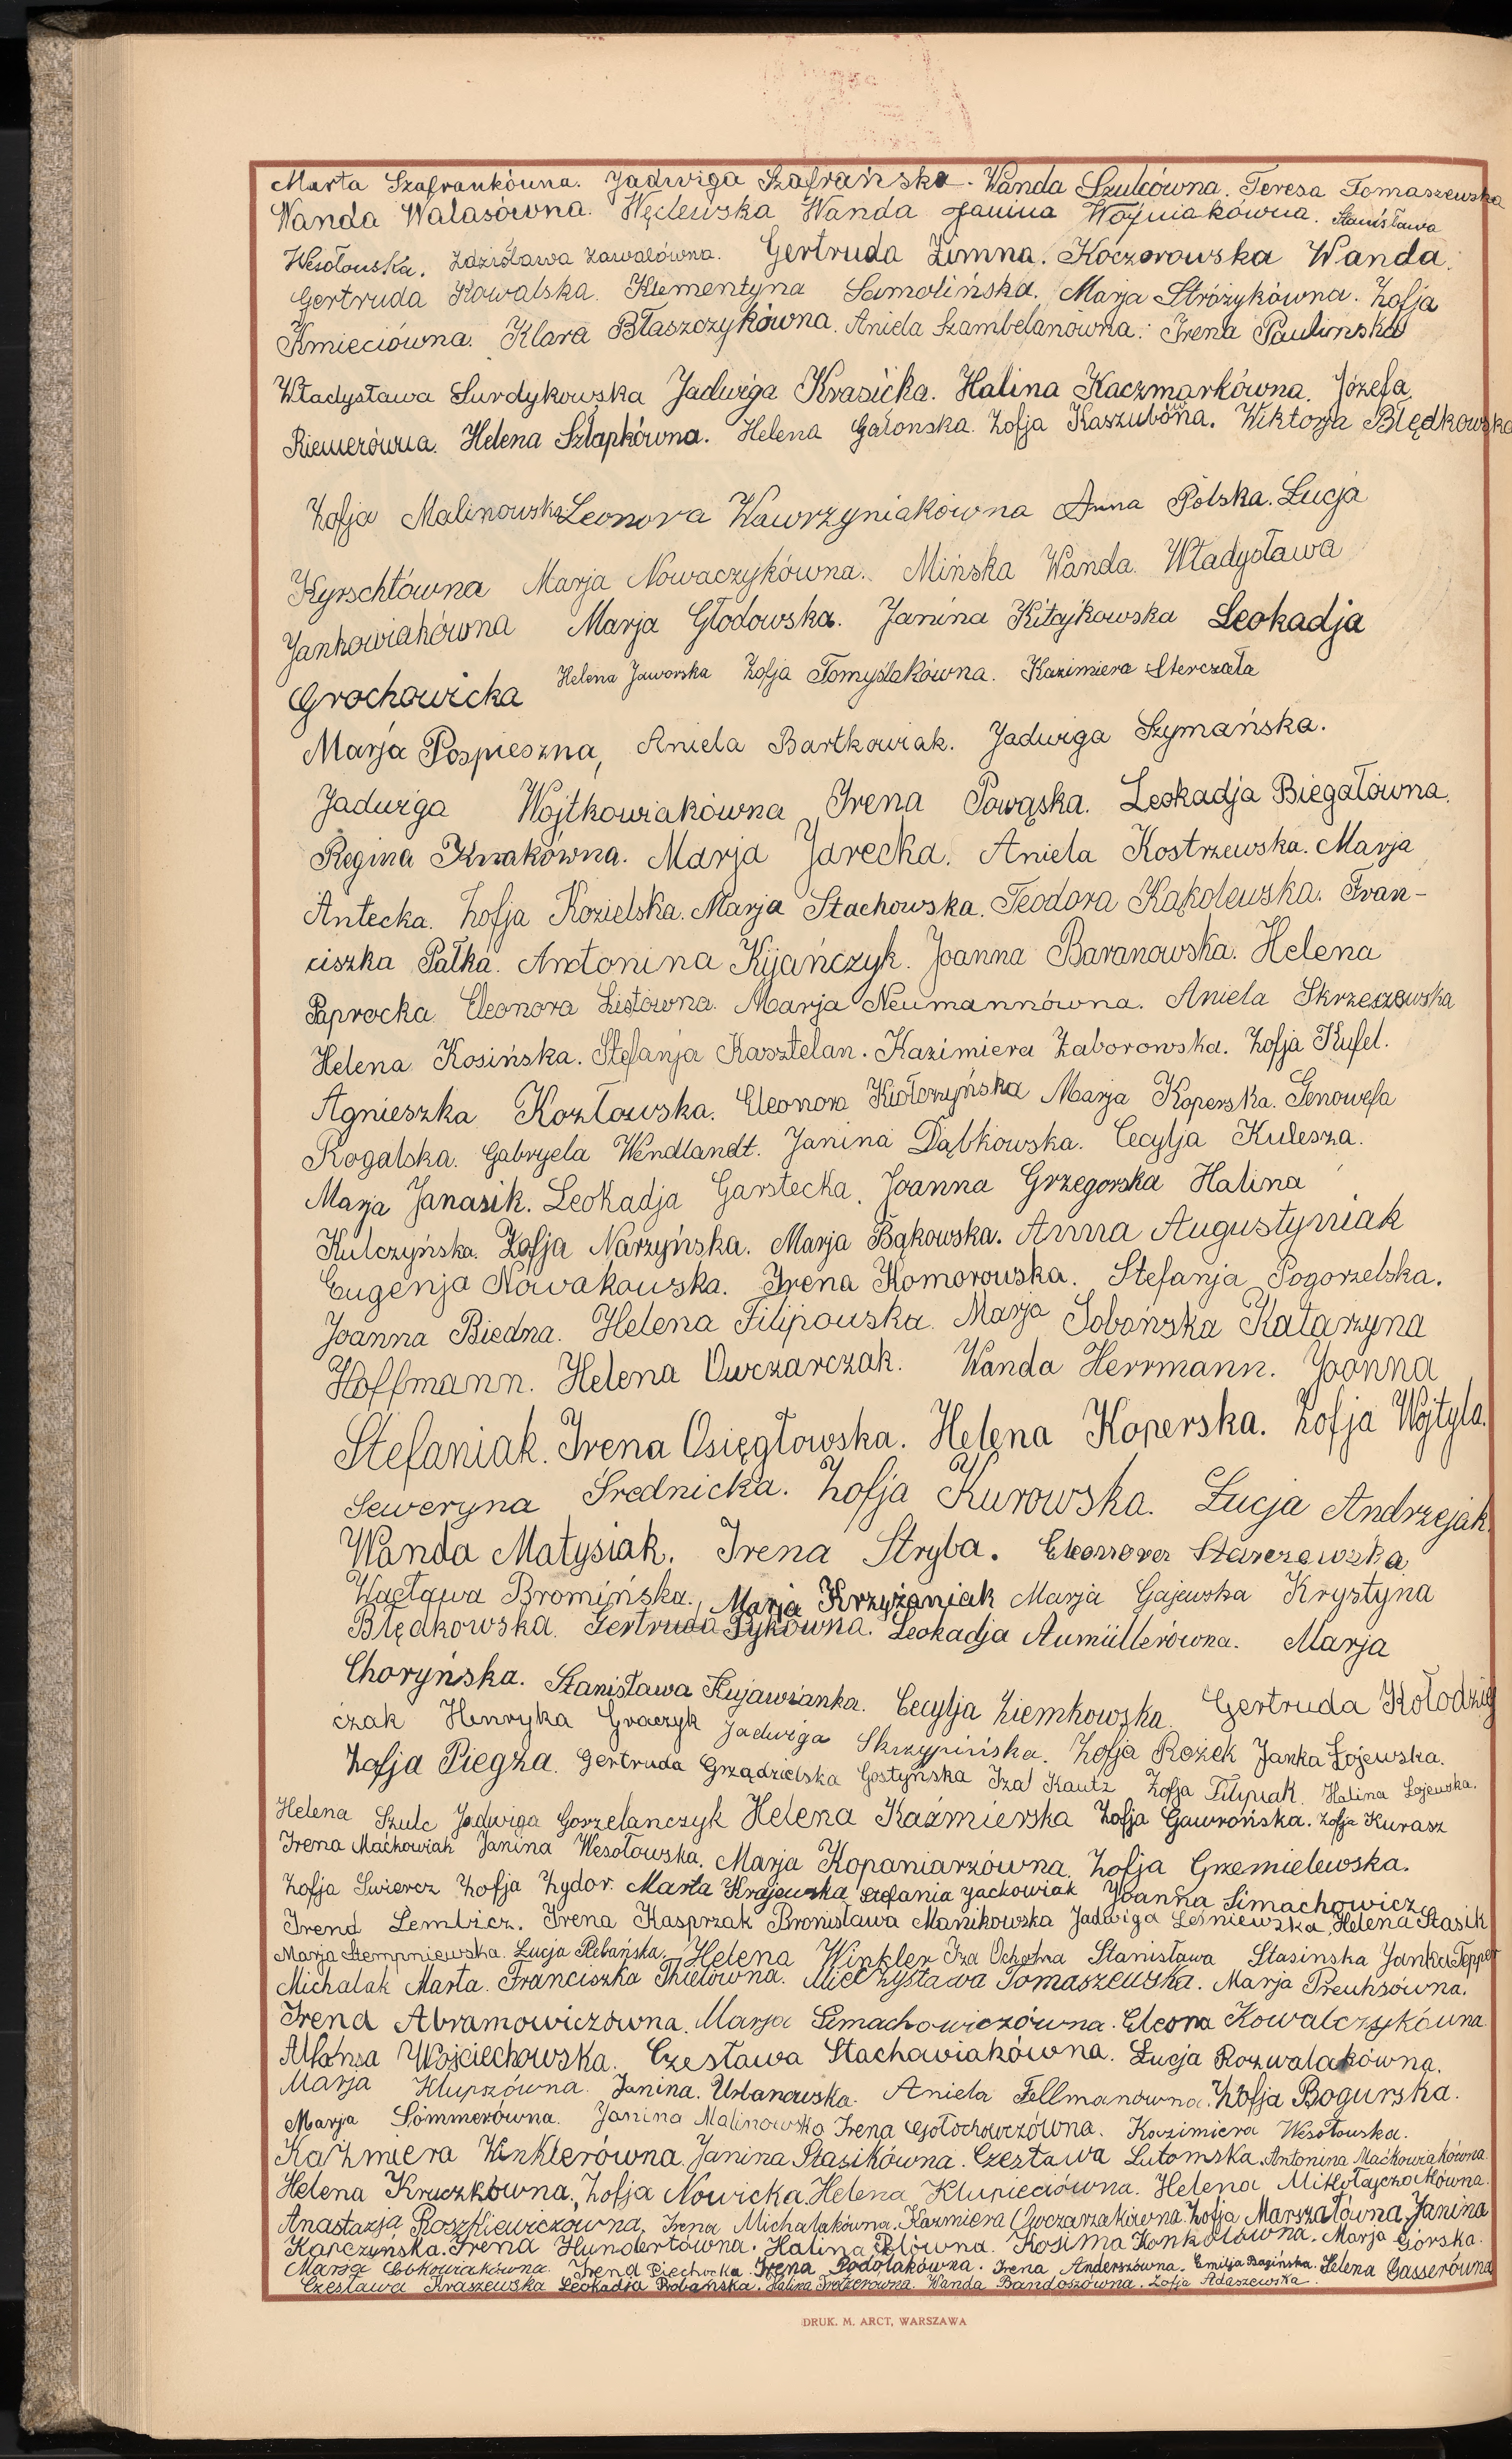 Marta Szafrankówna. Jadwiga Szafrańska. Wanda Szulcówna. Teresa Tomaszewska
Wanda Walasówna. Węclewska Wanda Janina Woźniakówna. Stanisława
Wesołowska. Zdzisława Zawalówna. Gertruda Zimna. Koczorowska Wanda.
Gertruda Kowalska. Klementyna Samolińska. Marja Stróżykówna. Zofja
Kmieciówna. Klara Błaszczykówna. Aniela Szambelanówna. Irena Paulinska
Władysława Surdykowska Jadwiga Krasicka. Halina Kaczmarkówna. Józefa
Riemerówna. Helena Szłapkówna. Helena Galonska. Zofja Kaszubówna. Wiktorja Błędkowska
Zofja Malinowska Leonora Wawrzyniakówna Anna Polska. Łucja
Kyrschtówna Marja Nowaczykówna. Mińska Wanda. Władysława
Jankowiakówna Marja Głodowska. Janina Kitajkowska Leokadja
Grochowicka Helena Jaworska Zofja Tomyślakówna. Kazimiera Sterczała
Marja Pospieszna, Aniela Bartkowiak. Jadwiga Szymańska.
Jadwiga Wojtkowiakówna Irena Powąska. Leokadja Biegałówna.
Regina Knakówna. Marja Jarecka. Aniela Kostrzewska. Marja
Antecka. Zofja Kozielska. Marja Stachowska. Teodora Kąkolewska. Fran-
ciszka Pałka. Antonina Kijańczyk. Joanna Baranowska. Helena
Paprocka Eleonora Listówna. Marja Neumannówna. Aniela Skrzeszewska
Helena Kosińska. Stefanja Kasztelan. Kazimiera Zaborowska. Zofja Kufel.
Agnieszka Kozłowska. Eleonora Kiołczyńska Marja Koperska. Genowefa
Rogalska. Gabryela Wendlandt. Janina Dąbkowska. Cecylja Kulesza.
Marja Janasik. Leokadja Garstecka. Joanna Grzegorska Halina
Kulczyńska. Zofja Narzyńska. Marja Bąkowska. Anna Augustyniak
Eugenja Nowakowska. Irena Komorowska. Stefanja Pogorzelska.
Joanna Biedna. Helena Filipowska. Marja Sobańska Katarzyna
Hoffmann. Helena Owczarczak. Wanda Herrmann. Joanna
Stefaniak. Irena Osięgłowska. Helena Koperska. Zofja Wojtyla.
Seweryna Średnicka. Zofja Kurowska. Łucja Andrzejak.
Wanda Matysiak. Irena Stryba. Eleonora Starczewska
Wacława Bromińska. Marja Krzyżaniak Marja Gajewska Krystyna
Błędkowska. Gertruda Pykówna. Leokadja Aumüllerówna. Marja
Choryńska. Stanisława Kujawianka. Cecylja Ziemkowska. Gertruda Kołodziej
czak Henryka Graczyk Jadwiga Skrzypińska. Zofja Rożek Janka Łojewska.
Zofja Piegza. Gertruda Grządzielska Gostyńska Iza Kautz Zofja Filipiak. Halina Łojewska.
Helena Szulc Jadwiga Gorzelanczyk Helena Kaźmierska Zofja Gawrońska. Zofja Kurasz
Irena Maćkowiak Janina Wesołowska. Marja Kopaniarzówna. Zofja Grzemielewska.
Zofja Swiercz Zofja Zydor. Marta Krajewska Stefania Jackowiak Joanna Simachowicz
Irena Lembicz. Irena Kasprzak Bronisława Manikowska Jadwiga Leśniewska, Helena Stasik
Marja Stempniewska. Łucja Plebańska. Helena Winkler Iza Ochotna Stanisława Stasinska Janka Tepper
Michalak Marta. Franciszka Thielówna. Mieczysława Tomaszewska. Marja Preuhsówna.
Irena Abramowiczówna. Marja Simachowiczówna. Eleona Kowalczykówna
Alfonsa Wojciechowska. Czesława Stachowiakówna. Łucja Rozwalakówna.
Marja Klupszówna. Janina. Urbanowska. Aniela Fellmanówna. Zofja Bogurska.
Marja Sommerówna. Janina Malinowska Irena Gołochowczówna. Kazimiera Wesołowska.
Kaźmiera Winklerówna. Janina Stasikówna. Czesława Lutomska. Antonina Maćkowiakówna
Helena Kruczkówna. Zofja Nowicka. Helena Klupieciówna. Helena Mikołajczakówna.
Anastazja Roszkiewiczówna. Irena Michalakówna. Kazmiera Owczarzakówna. Zofja Marszałówna. Janina
Karczyńska. Irena Hundertówna. Halina Kosima Konkolówna. Marja Górska.
Marja Cokowiakówna. Irena Piechocka. Irena Podolakówna. Irena Anderszówna. Emilja Bagińska. Helena Gasserówna
Czesława Kraszewska Leokadja Robańska. Halina Wanda Bandoszówna. Zofja Adaszewska.
DRUK. M. ARCT, WARSZAWA